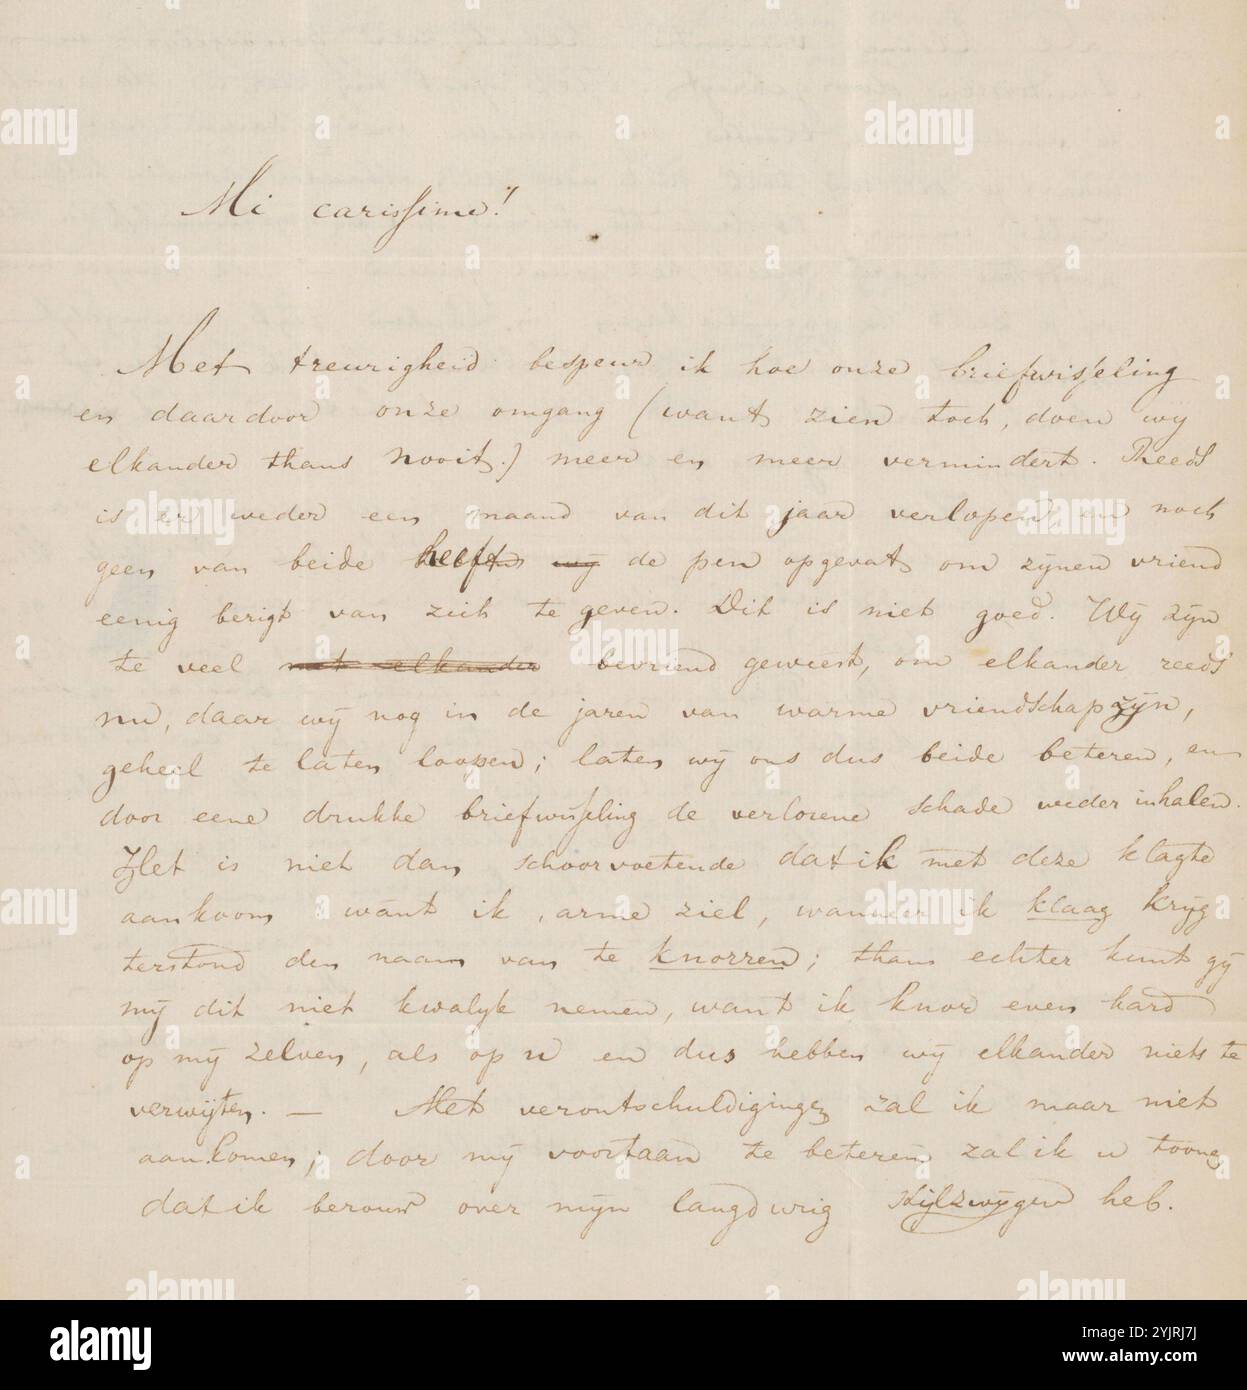 Mi carissime!
Met treurigheid bespeur ik hoe onze briefwisseling
en daardoor onze omgang (want zien toch, doen wij
elkander thans nooit.) meer en meer vermindert. Reeds
is er weder een maand van dit jaar verlopen, en noch
geen van beide heeft wij de pen opgevat om zijnen vriend
eenig berigt van zich te geven. Dit is niet goed. Wij zijn
te veel met elkander bevriend geweest, om elkander reeds
nu, daar wij nog in de jaren van warme vriendschap zijn,
geheel te laten loopen; laten wij ons dus beide beteren, en
door eene drukke briefwisseling de verlorene schade weder inhalen.
Het is niet dan schoorvoetende dat ik met deze klagte
aankoom want ik, arme ziel, wanneer ik klaag krijg
terstond den naam van te knorren; thans echter kunt gij
mij dit niet kwalijk nemen, want ik knor even hard
op mij zelven, als op u en dus hebben wij elkander niets te
verwijten. — Met verontschuldigingen zal ik maar niet
aankomen; door mij voortaan te beteren zal ik u toonen
dat ik berouw over mijn langdurig stilzwijgen heb.
alamy
Image ID: 2YJRJ7J
www.alamy.com